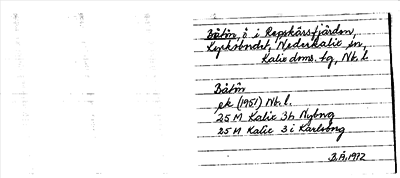 Båtön, ö i Repskärsfjärden,
Repskärsbodet, Nederkalix sn,
Kalix doms. tg, Nb. l.
Båtön
ek (1951) Nb. l.
25 M Kalix 3h Nyborg
25 M Kalix 3 i Karlsborg
B.Å. 1972